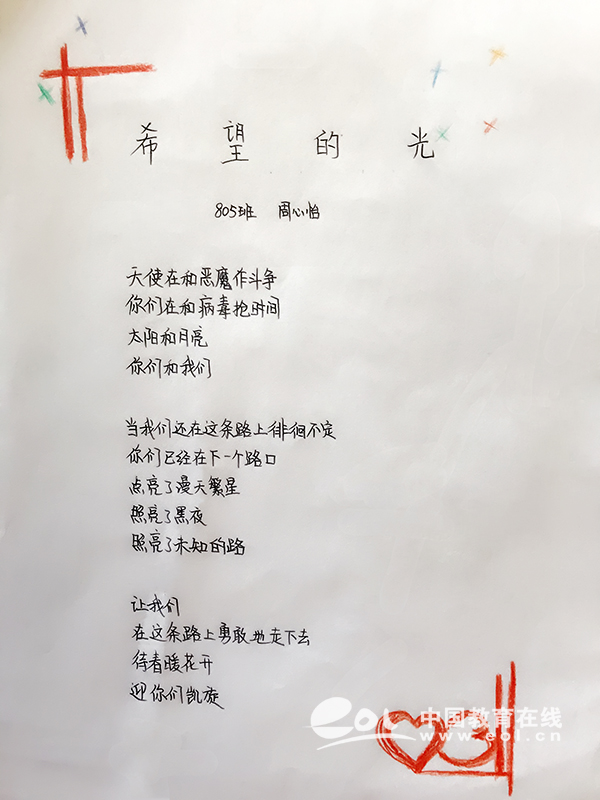 希望的光
805班 周心怡
天使在和恶魔作斗争
你们在和病毒抢时间
太阳和月亮
你们和我们
当我们还在这条路上徘徊不定
你们已经在下一个路口
点亮了漫天繁星
照亮了黑夜
照亮了未知的路
让我们
在这条路上勇敢地走下去
待春暖花开
迎你们凯旋
eol 中国教育在线
www.eol.cn